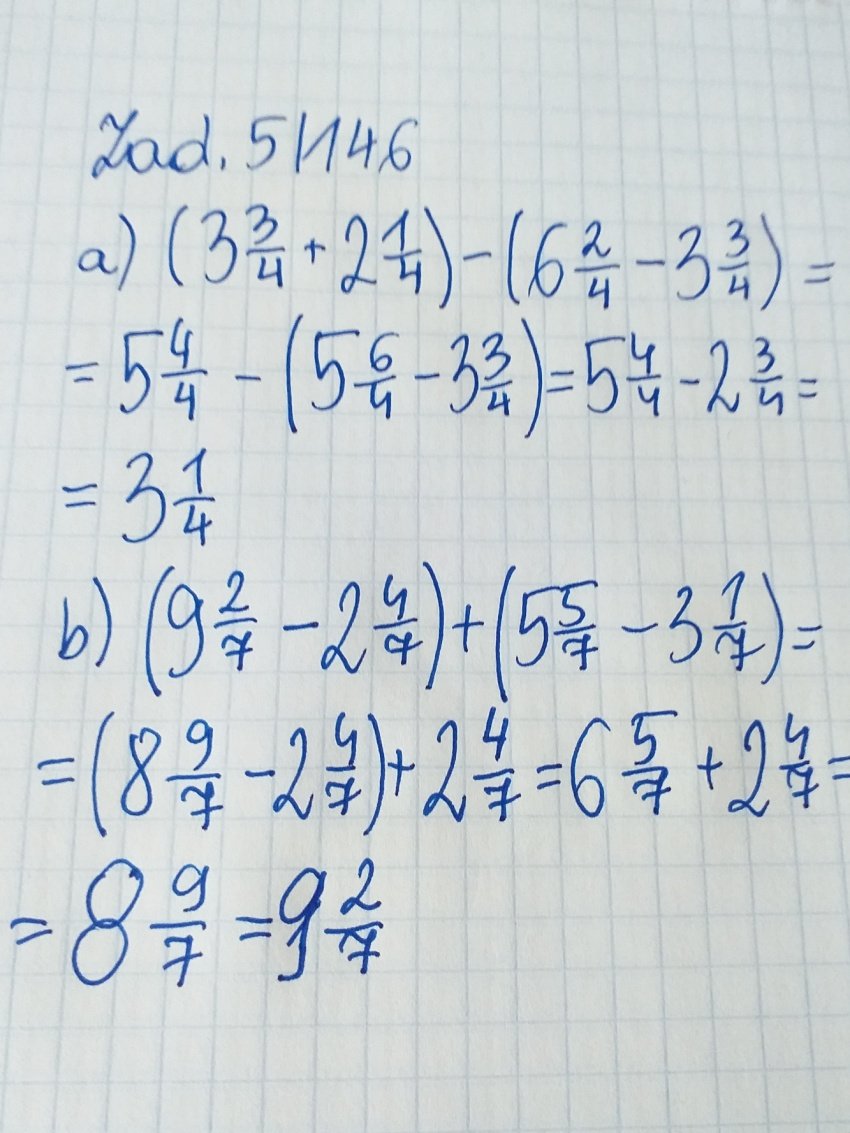 Zad. 5/146
a) (3 3/4 + 2 1/4) - (6 2/4 - 3 3/4) =
= 5 4/4 - (5 6/4 - 3 3/4) = 5 4/4 - 2 3/4 =
= 3 1/4
b) (9 2/7 - 2 4/7) + (5 5/7 - 3 1/7) =
= (8 9/7 - 2 4/7) + 2 4/7 = 6 5/7 + 2 4/7 =
= 8 9/7 = 9 2/7